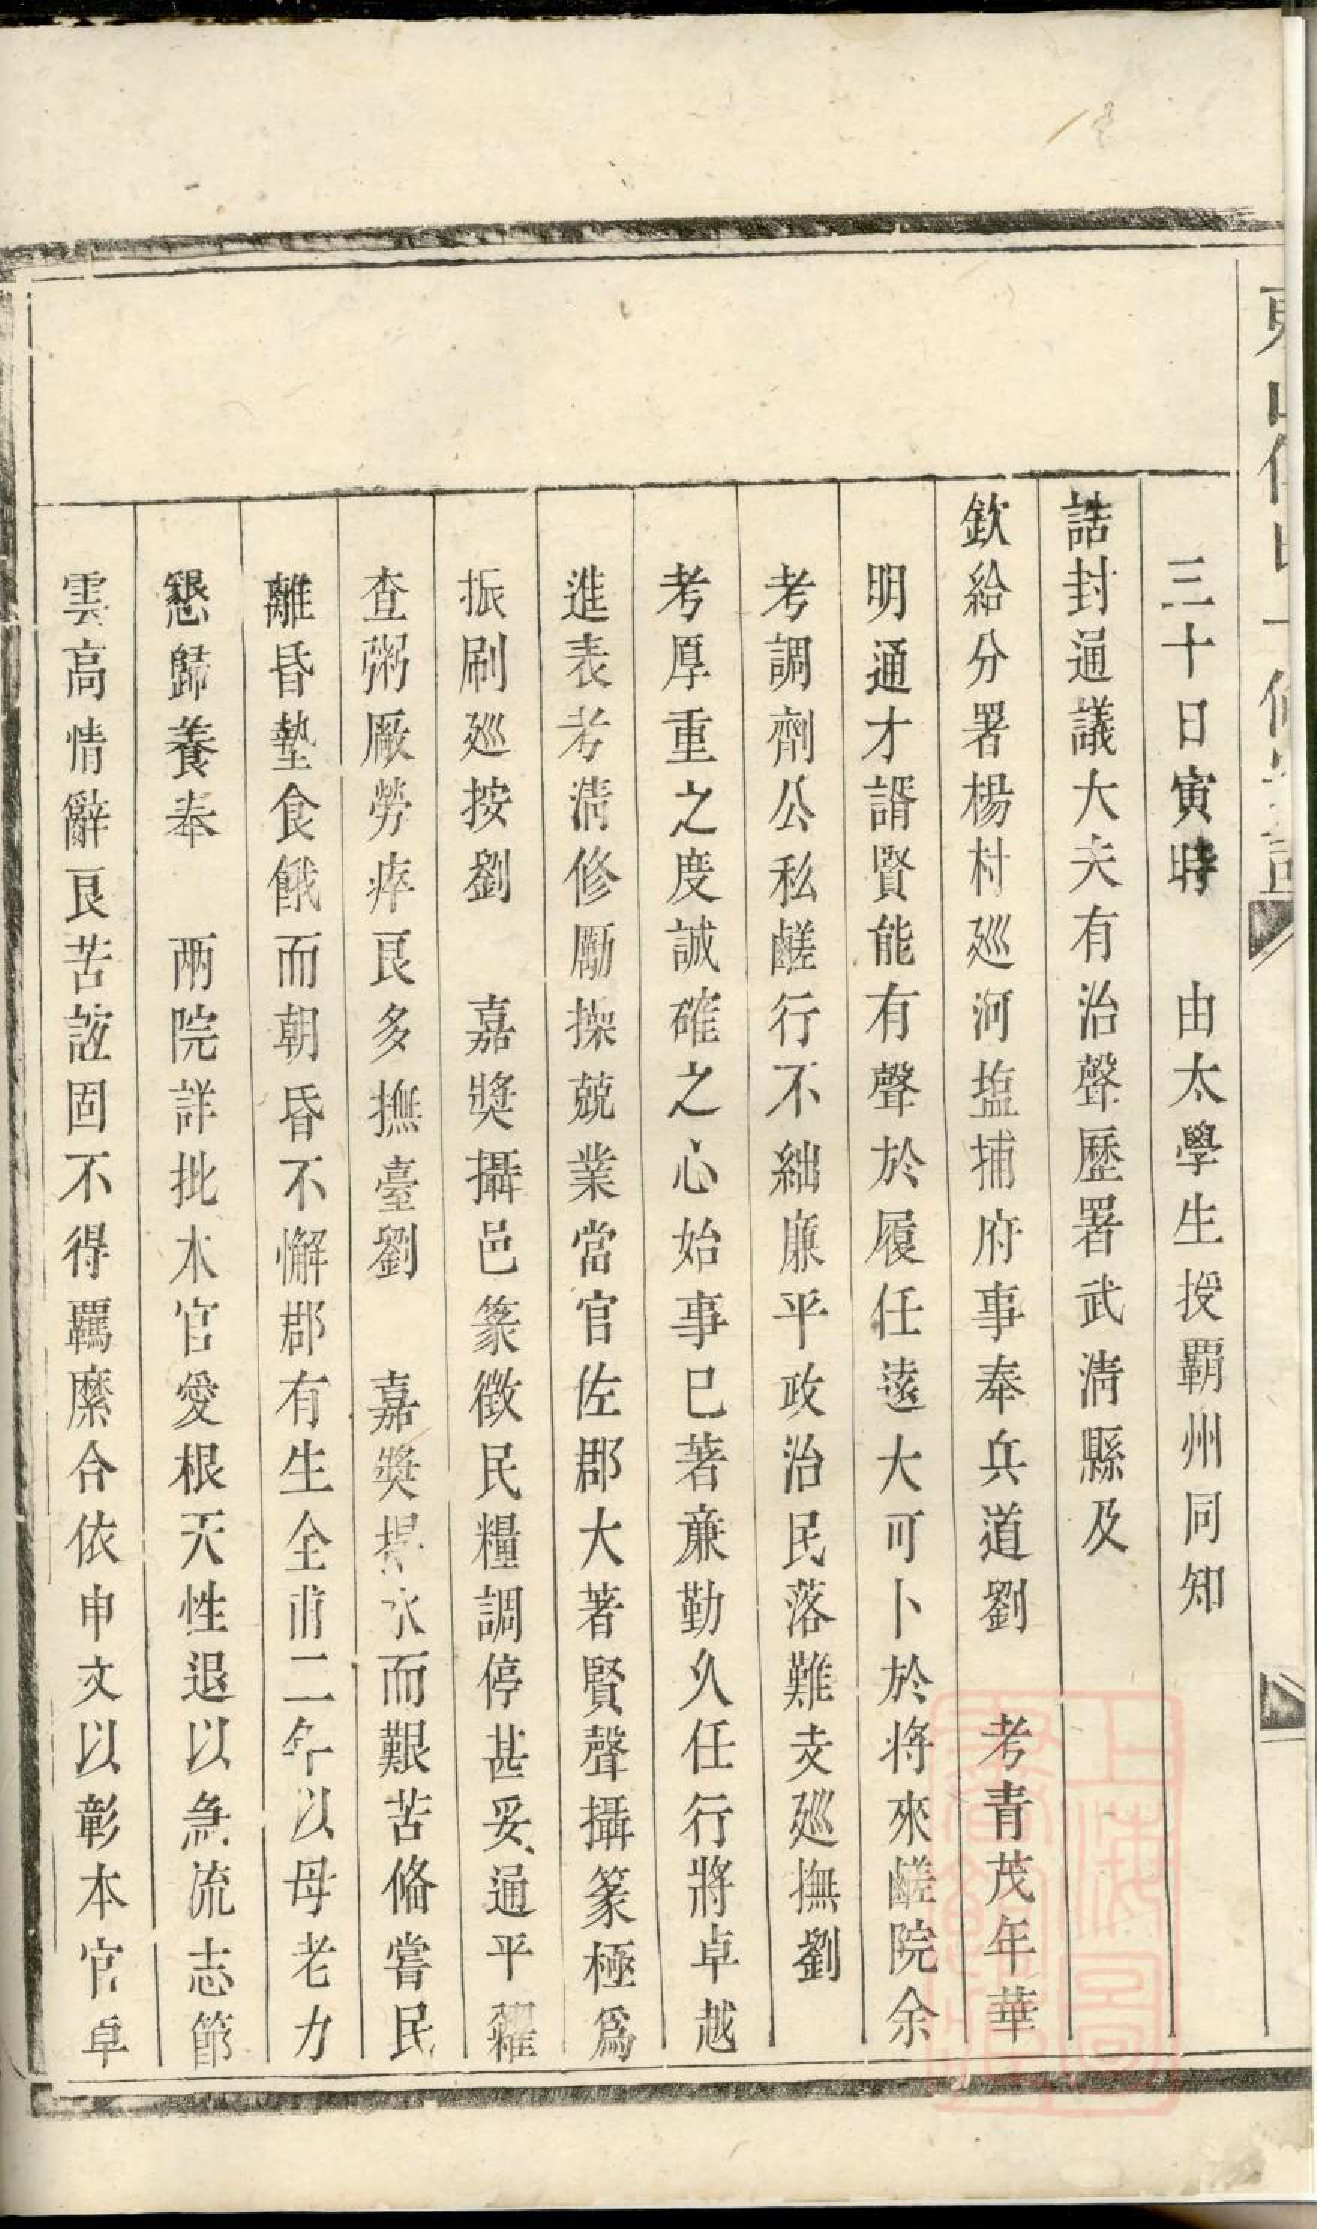 三十日寅時　由太學生授霸州同知
誥封通議大夫有治聲歷署武清縣及
欽給分署楊村廵河塩捕府事奉兵道劉　考青茂年華
明通才諝賢能有聲於履任遠大可卜於将來鹺院余
考調劑公私鹺行不絀廉平政治民落難支廵撫劉
考厚重之度誠確之心始事巳著亷勤久任行將卓越
進表考清修勵操兢業當官佐郡大著賢聲攝篆極爲
振刷廵按劉　嘉獎攝邑篆徵民糧調停甚妥通平糶
查粥厰勞瘁艮多撫臺劉　嘉獎而艱苦俻嘗民
離昏墊食餓而朝昏不懈郡有生全甫二年以母老力
懇歸養奉　兩院詳批本官愛根天性退以急流志節
雲高情辭艮苦誼固不得覊縻合依申文以彰本官卓